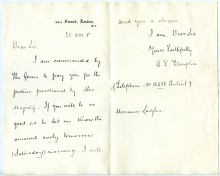 Street, London,
Dear Sir
I am commanded by
the Queen to pay you for
the picture purchased by Her
Majesty. If you will be so
good as to let me know the
amount early tomorrow
(Saturday) morning I will
send you a cheque.
I am Dear Sir
Yours faithfully
(Telephone No
Monsieur